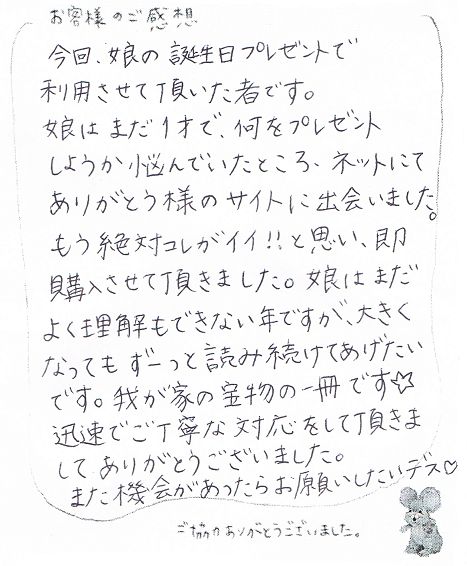 お客様のご感想
今回、娘の誕生日プレゼントで
利用させて頂いた者です。
娘はまだ1才で、何をプレゼント
しようか悩んでいたところ、ネットにて
ありがとう様のサイトに出会いました。
もう絶対コレがイイ!!と思い、即
購入させて頂きました。娘はまだ
よく理解もできない年ですが、大きく
なってもずーっと読み続けてあげたい
です。我が家の宝物の一冊です☆
迅速でご丁寧な対応をして頂きま
してありがとうございました。
また機会があったらお願いしたいデス♡
ご協力ありがとうございました。